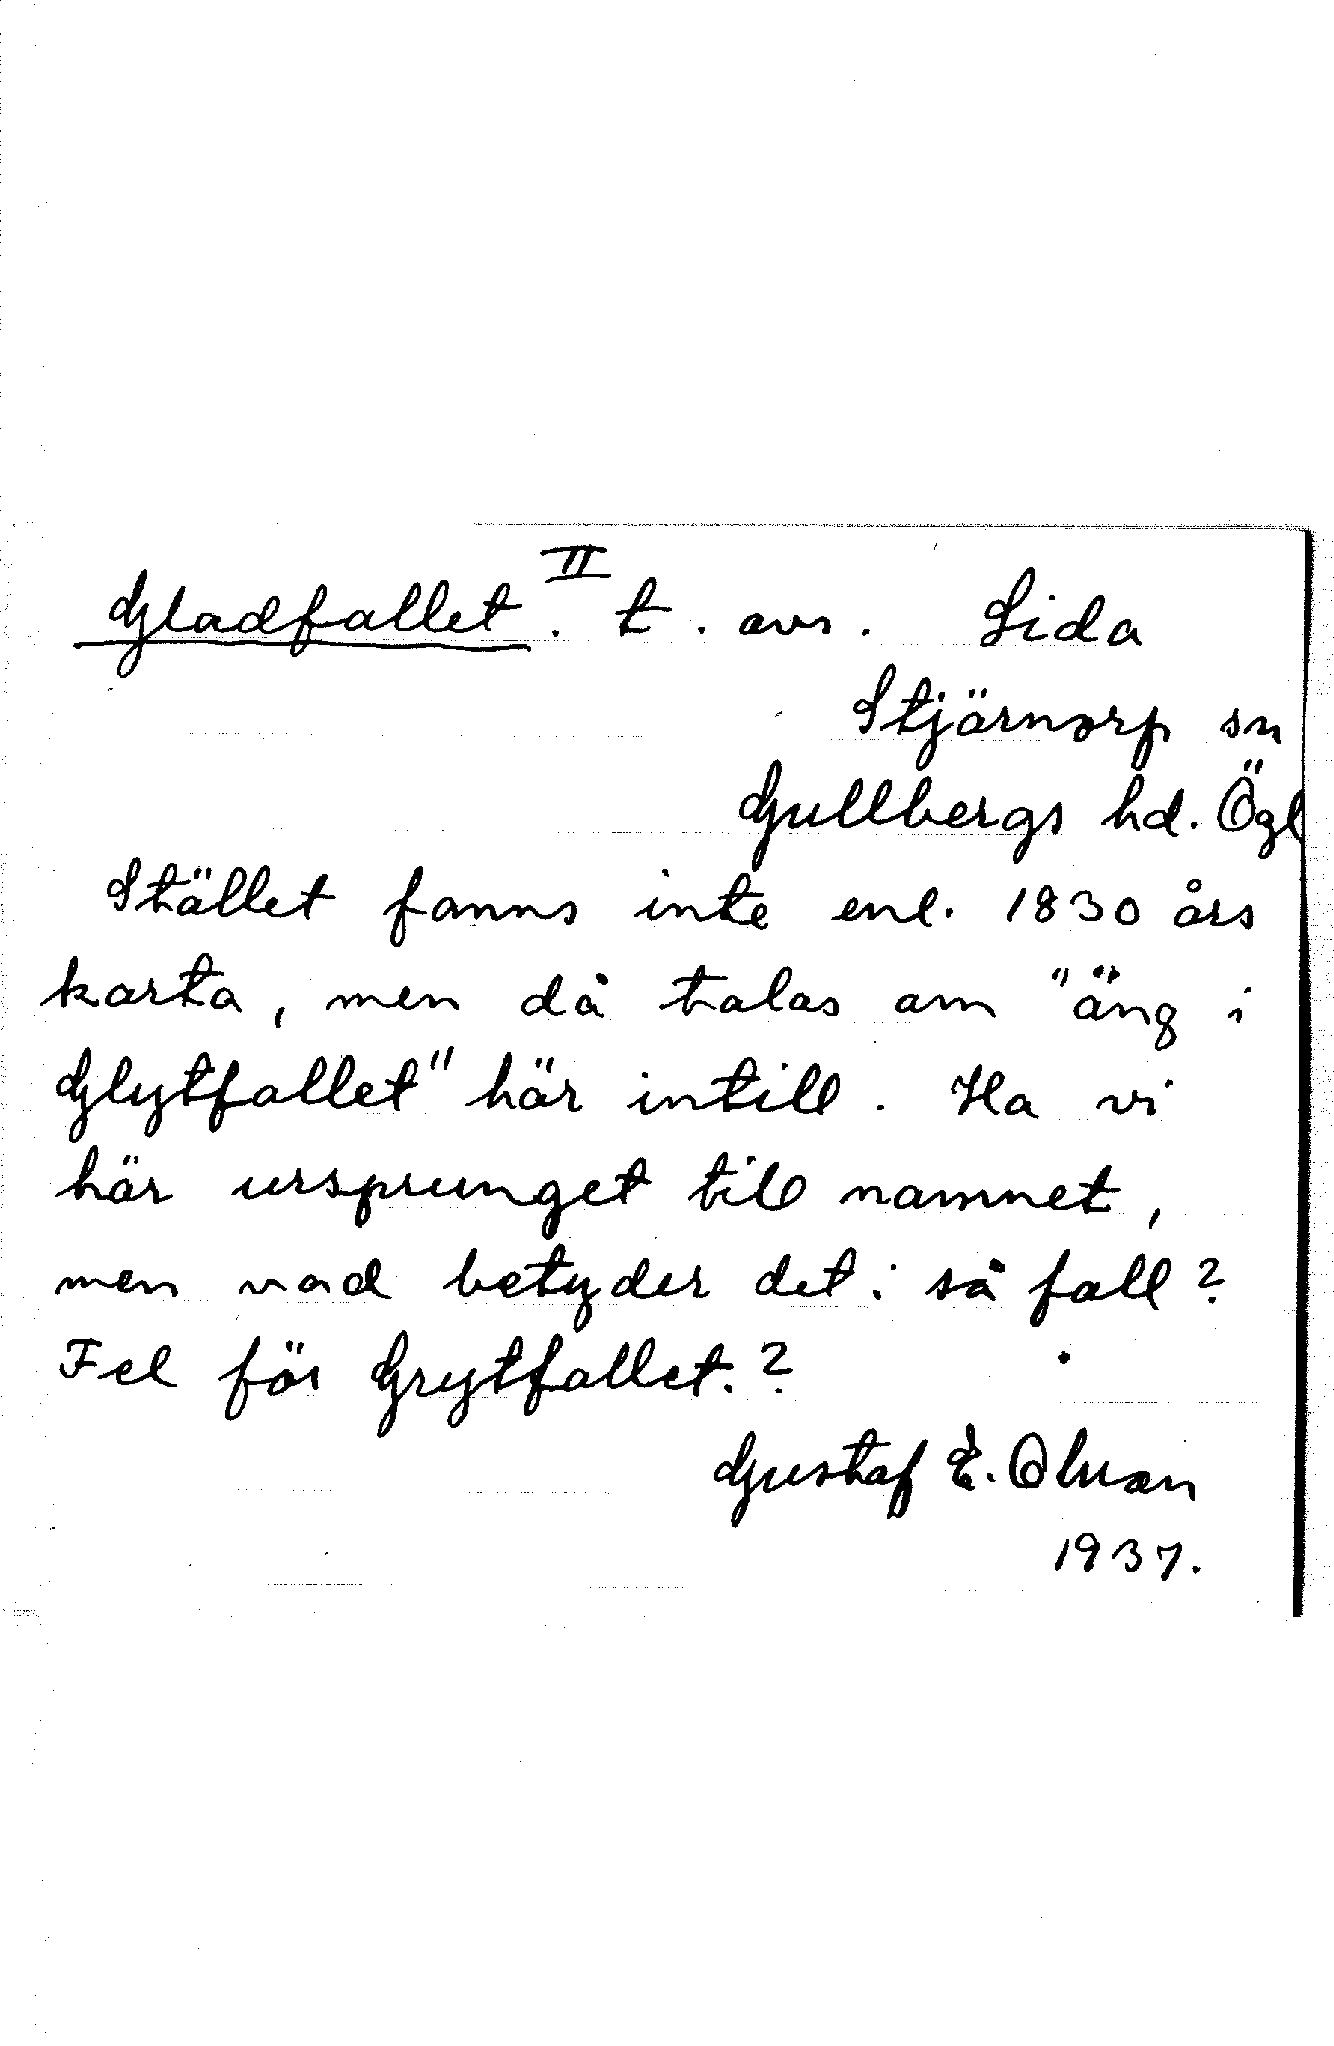 Gladfallet. II t. avs. Lida
Stjärnorp sn
Gullbergs hd. Ögl
Stället fanns inte enl. 1830 års
karta, men då talas om "äng i
Glytfallet" här intill. Ha vi
här ursprunget till namnet,
men vad betyder det i så fall?
Fel för Grytfallet.?
Gustaf E. Olsson
1937.